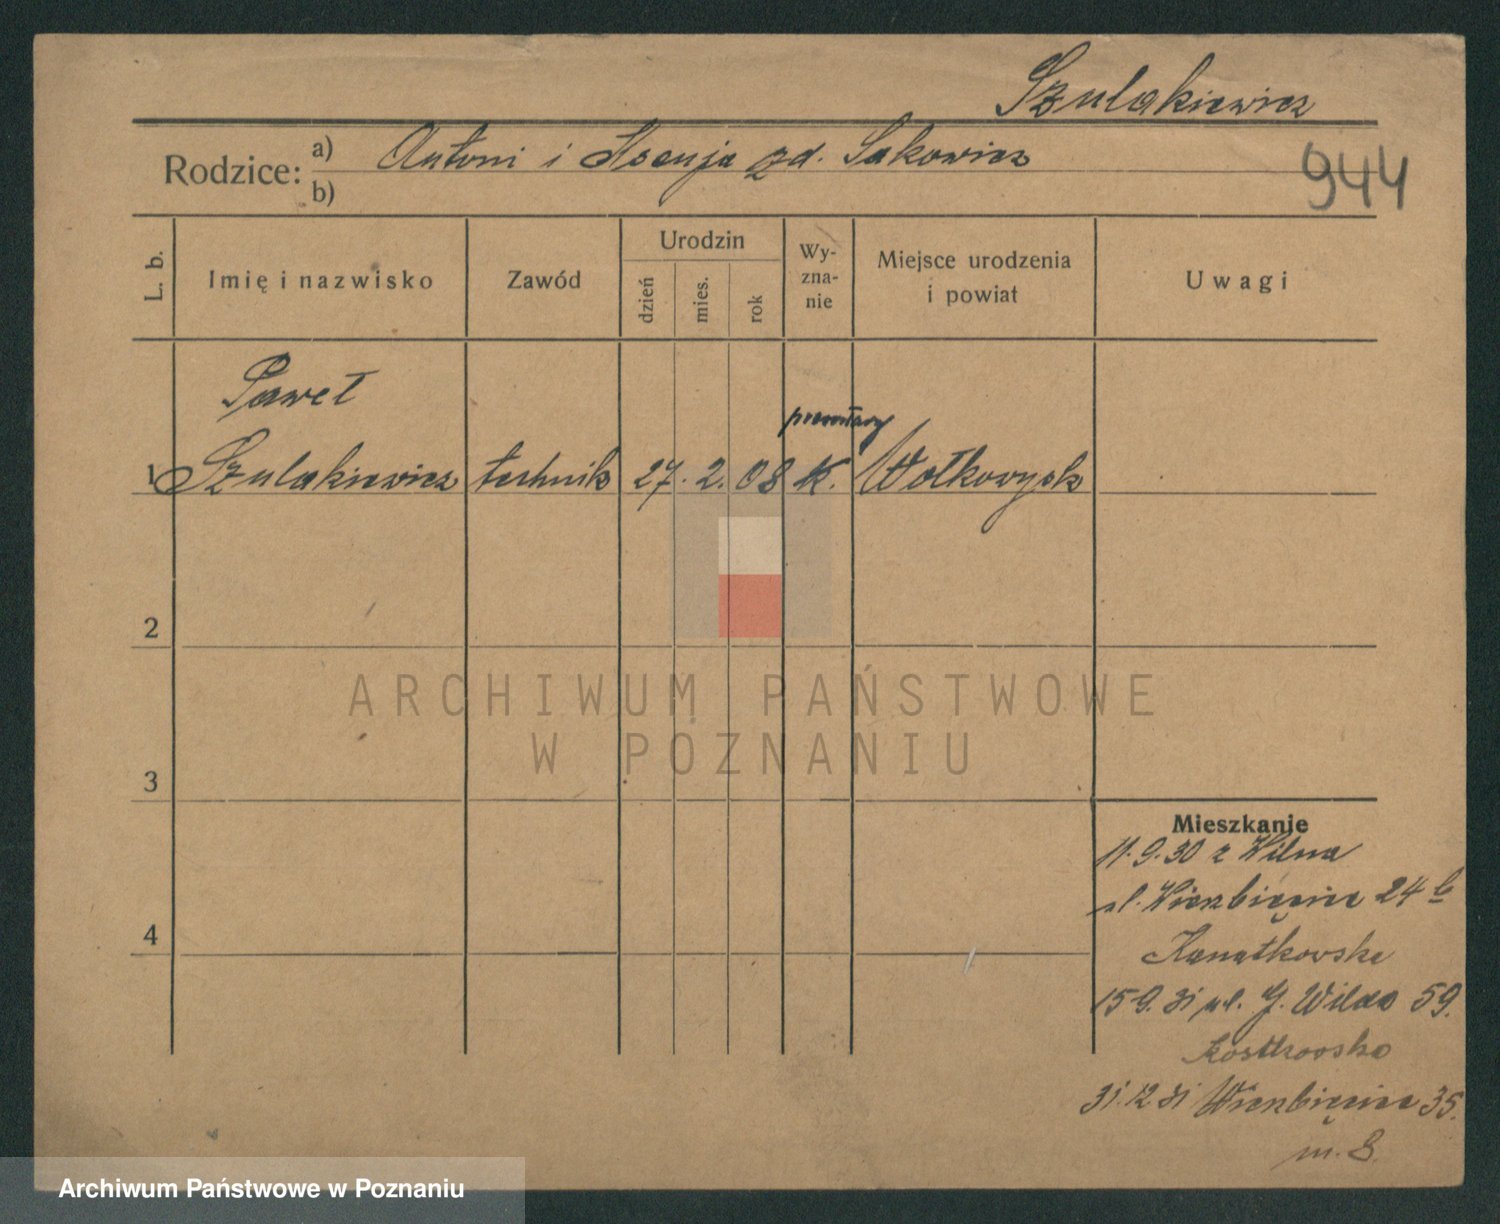 Szulakiewicz
Rodzice: a) Antoni i Ksenja zd. Sakowicz
b)
944
L. b.
Imię i nazwisko
Zawód
Urodzin
dzień
mies.
rok
Wy-
zna-
nie
Miejsce urodzenia
i powiat
Uwagi
Paweł
prawosławny
1 Szulakiewicz technik 27. 2. 08 K. Wołkowysk
2
3
4
Mieszkanie
11.9.30 z Wilna
ul. Wierzbięcice 24 b
15.9.31 ul. G. Wilda 59.
31.12.31 Wierzbięcice 35.
m. 8.
ARCHIWUM PAŃSTWOWE
W POZNANIU
Archiwum Państwowe w Poznaniu